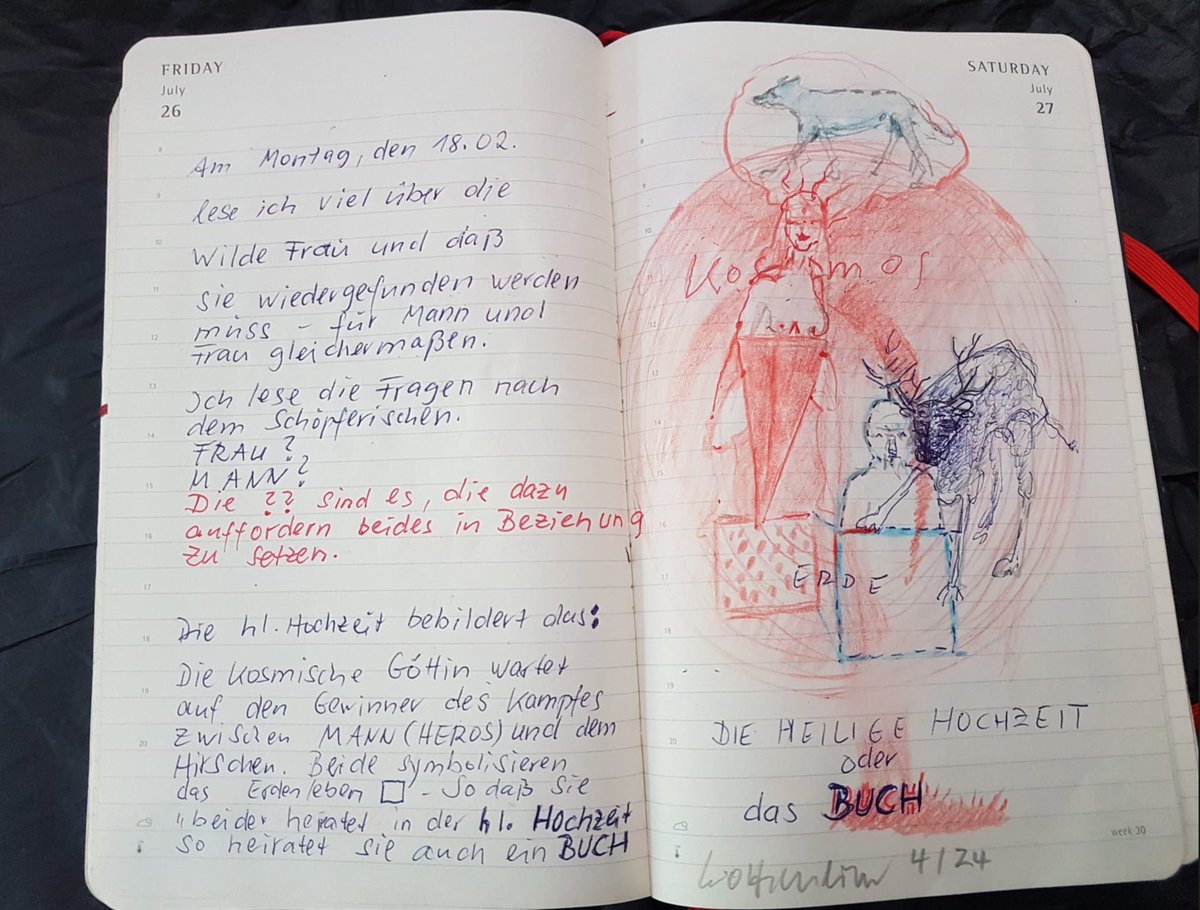 FRIDAY
July
26
8
Am Montag, den 18.02.
9
lese ich viel über die
10
Wilde Frau und daß
11
sie wiedergefunden werden
muss – für Mann und
12
Frau gleichermaßen.
13
Ich lese die Fragen nach
dem Schöpferischen.
14
FRAU?
MANN?
15
Die ?? sind es, die dazu
auffordern beides in Beziehung
16
zu setzen.
17
Die hl. Hochzeit bebildert das:
18
Die kosmische Göttin wartet
19
auf den Gewinner des Kampfes
zwischen MANN (HEROS) und dem
20
Hirschen. Beide symbolisieren
das Erdenleben □ – So daß sie
"beide" heiratet in der hl. Hochzeit
so heiratet sie auch ein BUCH
SATURDAY
July
27
8
9
10
Kosmos
11
12
13
14
15
16
17
ERDE
18
19
DIE HEILIGE HOCHZEIT
20
oder
das BUCH
week 30
4/24